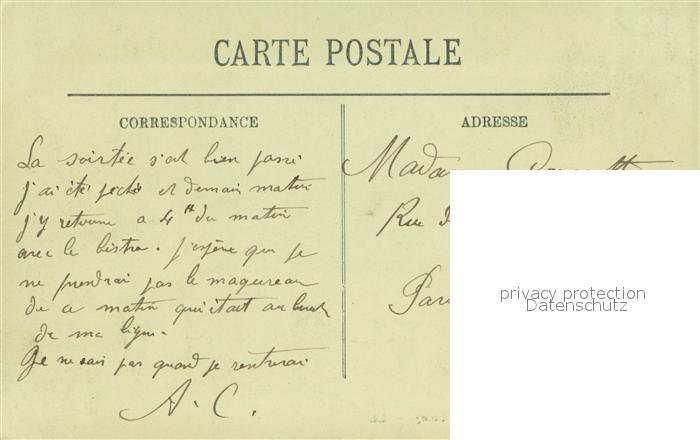 CARTE POSTALE
CORRESPONDANCE
La soirée s'est bien passé
j'ai été péché et demain matin
j'y retourne a 4h du matin
avec le bistro. j'espère que je
ne prendrai pas le maquereau
de ce matin qui était au bout
de ma ligne.
Je ne sais pas quand je rentrerai
A. C.
ADRESSE
Madame
Rue
Paris
privacy protection
Datenschutz